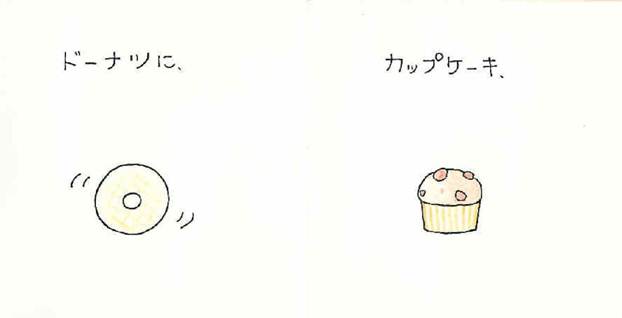 ドーナツに、
カップケーキ、